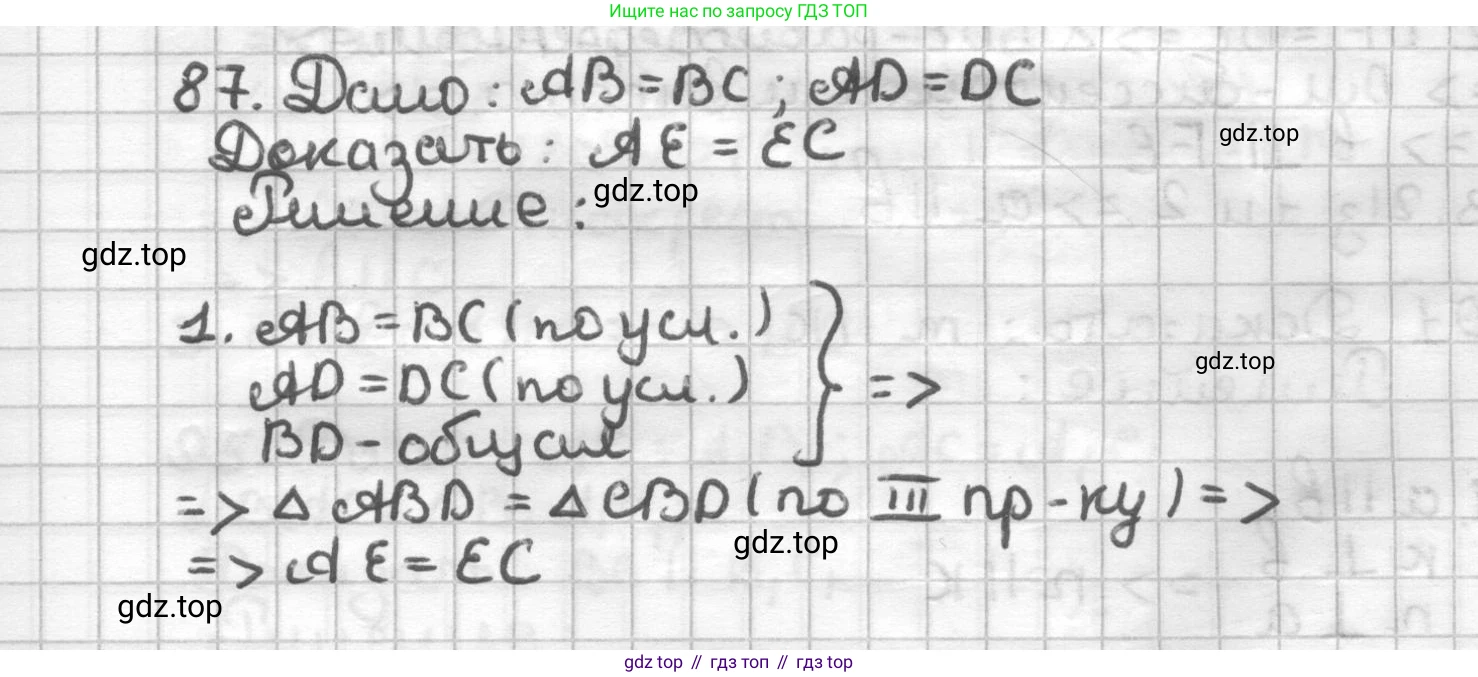 Ищите нас по запросу ГДЗ ТОП
87. Дано: AB = BC; AD = DC
gdz.top
Доказать: AE = EC
gdz.top
Решение:
gdz.top
1. AB = BC (по усл.)
AD = DC (по усл.) } =>
gdz.top
BD - общая
=> Δ ABD = Δ CBD (по III пр-ку) =>
gdz.top
=> AE = EC
gdz.top
gdz top // гдз топ // гдз top